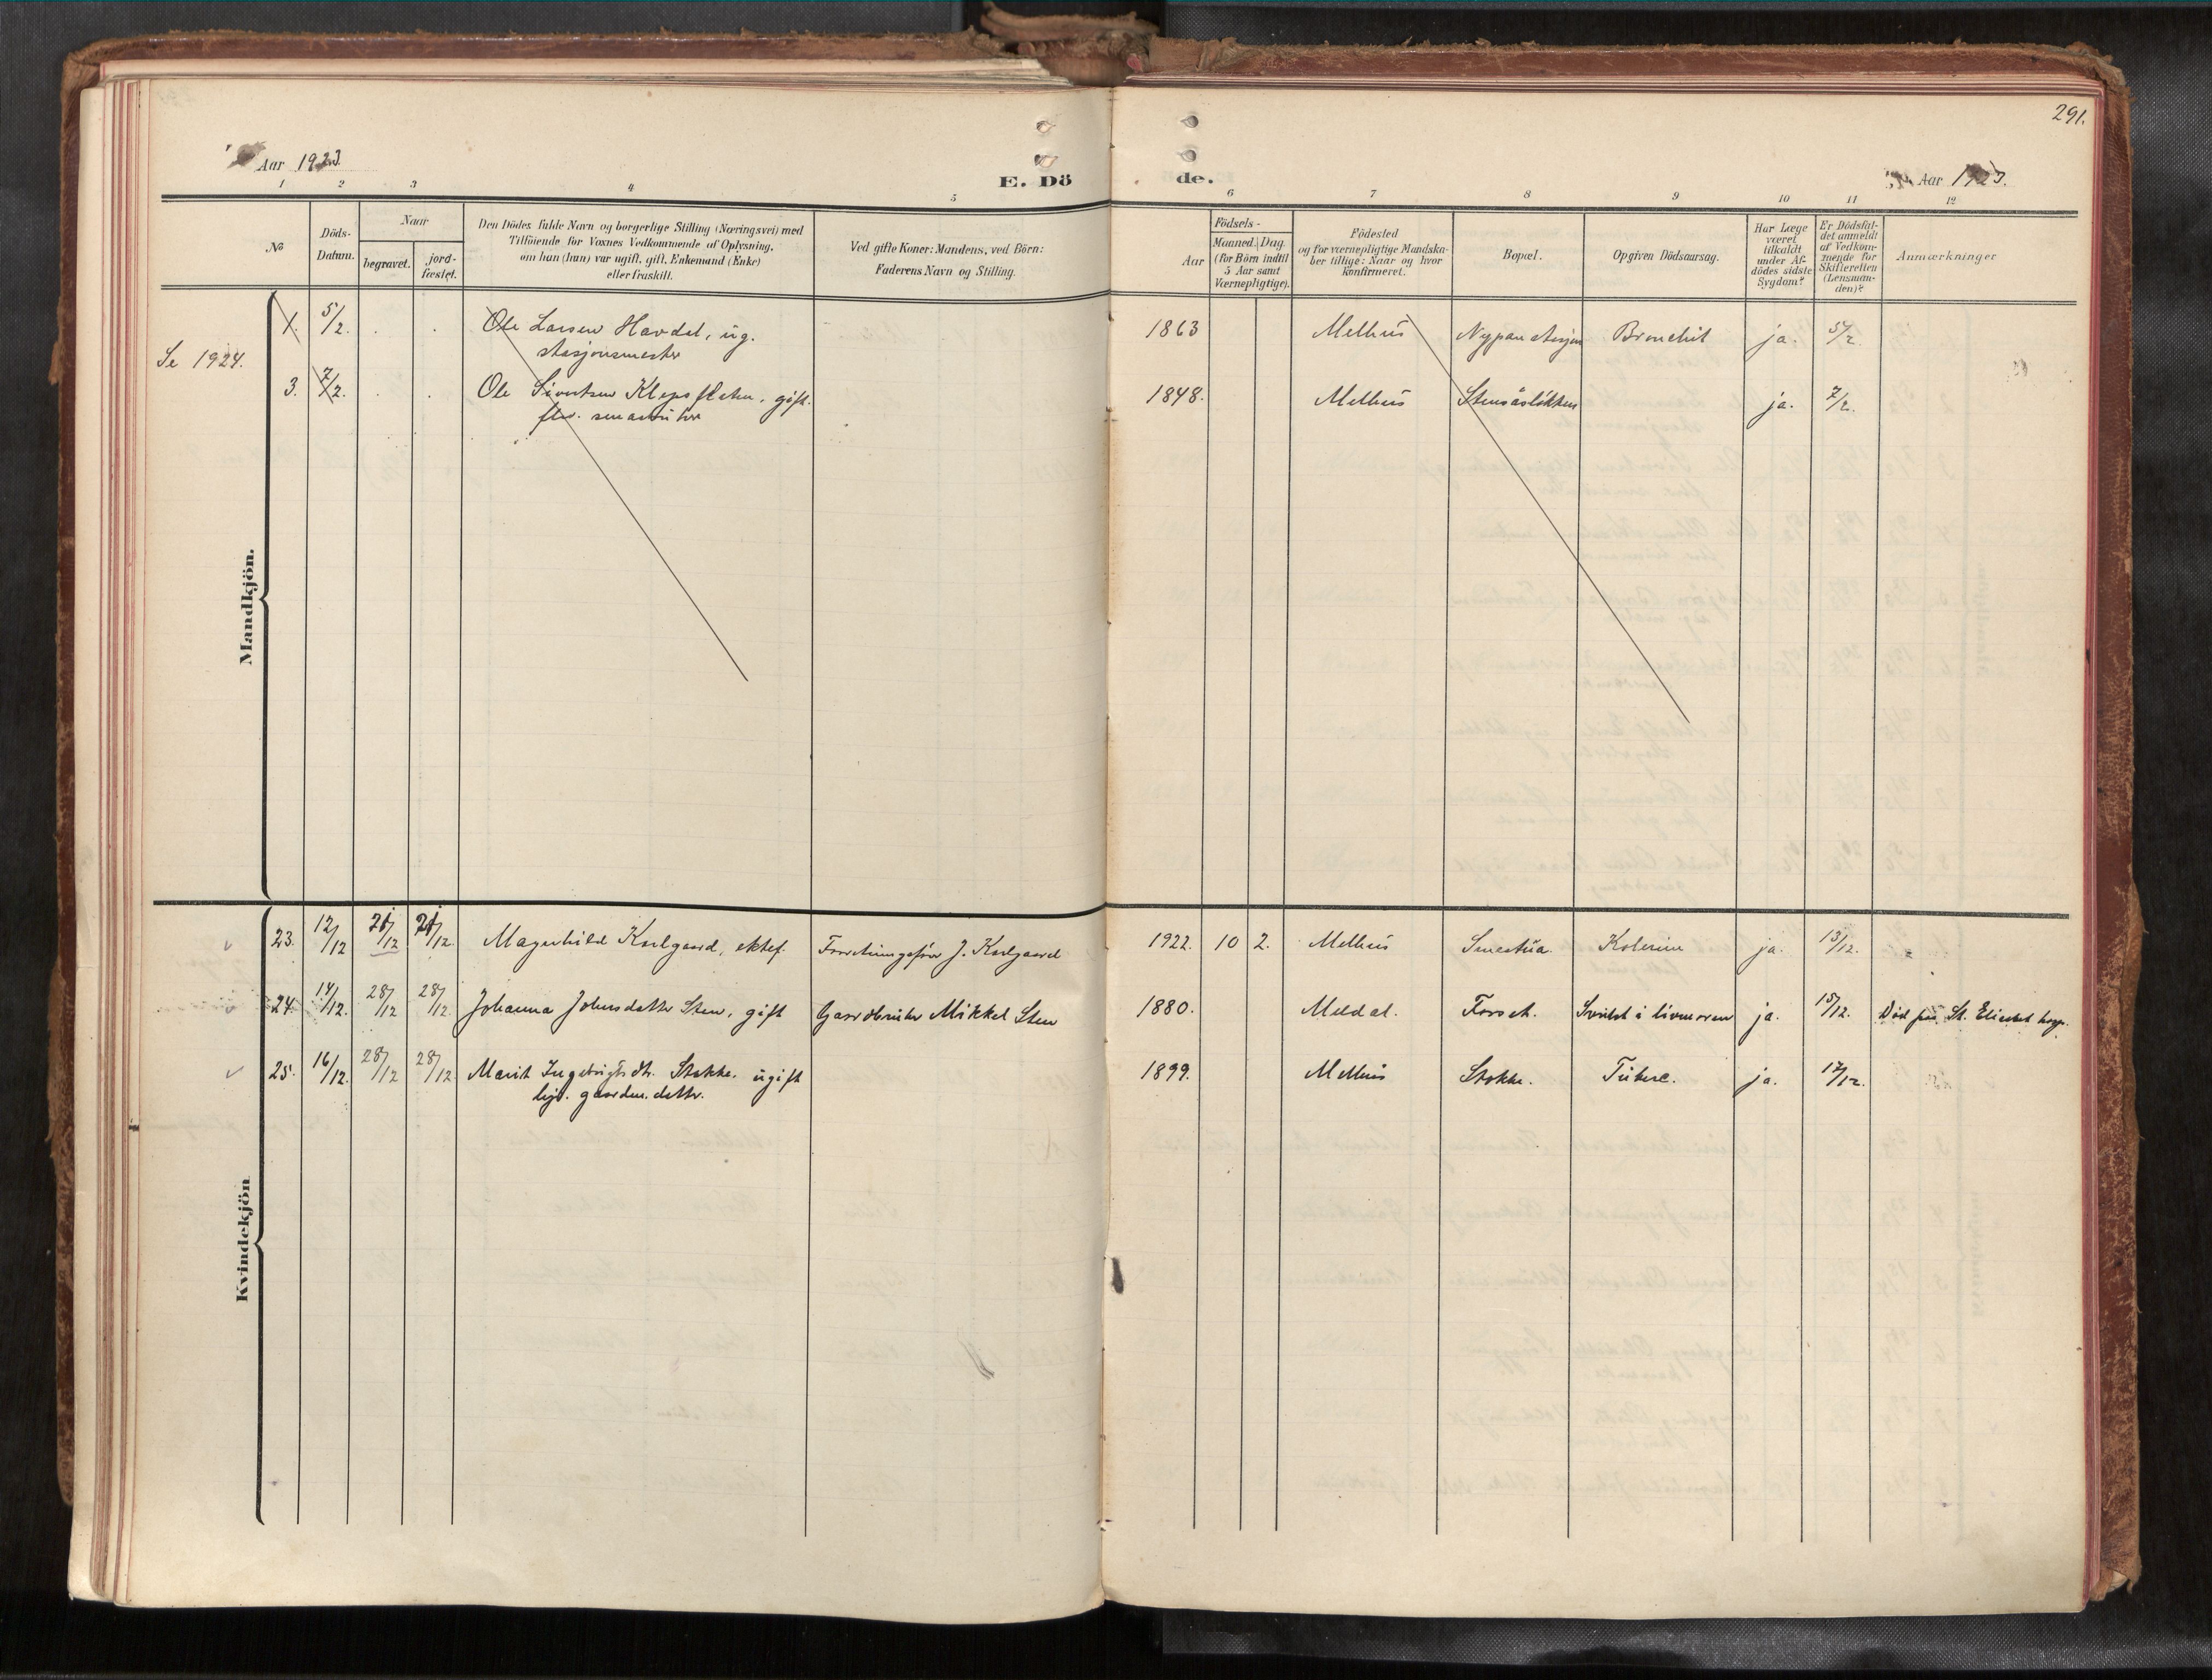 291.
Aar 1923.
E. Dö de.
Aar 1923.
1 2 3 4 5 6 7 8 9 10 11 12
№
Döds-
Datum.
Naar
begravet.
jord-
fæstet.
Den Dödes fulde Navn og borgerlige Stilling (Næringsvei) med
Tilföiende for Voxnes Vedkommende af Oplysning,
om han (hun) var ugift, gift, Enkemand (Enke)
eller fraskilt.
Ved gifte Koner: Mandens, ved Börn:
Faderens Navn og Stilling.
Aar
Födsels-
Maaned. Dag.
(for Börn indtil
5 Aar samt
Værnepligtige).
Födested
og for værnepligtige Mandska-
ber tillige: Naar og hvor
konfirmeret.
Bopæl.
Opgiven Dödsaarsag.
Har Læge
været
tilkaldt
under Af-
dödes sidste
Sygdom?
Er Dödsfal-
det anmeldt
af Vedkom-
mende for
Skifteretten
(Lensman-
den)?
Anmærkninger
Mandkjön.
1. 5/2. Ole Larsen Havdal, ug. 1863 Melhus Nypan stasjon Bronchit ja. 5/2.
stasjonsmester
Se 1924.
3. 7/2. Ole Sivertsen Klepsflaten, gift. 1848. Melhus Stensåsløkken ja. 7/2.
flv. smaabruker
Kvindekjön
23. 12/12 21/12 21/12. Magnhild Korlgaard, ektef. Forretningsfører J. Korlgaard 1922. 10 2. Melhus Smestua Kolerine ja. 13/12.
24. 14/12. 28/12 28/12. Johanna Johnsdatter Sten, gift Gaardbruker Mikkel Sten 1880. Meldal. Forset. Svulst i livmoren ja. 15/12. Död på St. Elisabet hosp.
25. 16/12. 28/12 28/12 Marit Ingebrigtsdtr. Stokke. ugift 1899. Melhus Stokke. Tuberc. ja. 17/12.
gaardm. datter.